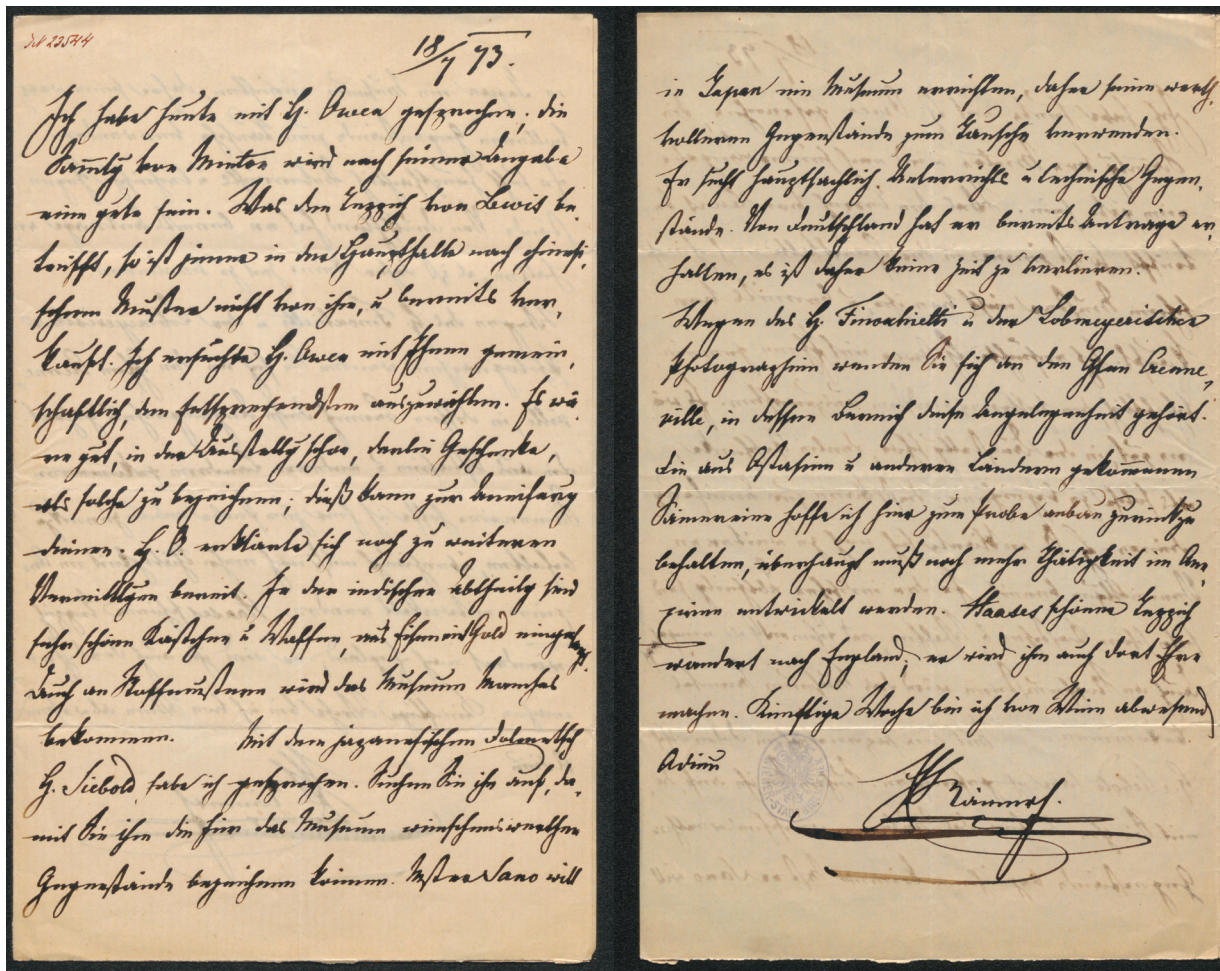 IN 23544
18/7 73.
Ich habe heute mit H. Owen gesprochen; die
Samlg von Minton wird nach seiner Angabe
eine gute sein. Was den Teppich von Lewis be¬
trifft, so ist jener in der Haupthalle nach chinesi¬
schem Muster nicht von ihm, u bereits ver¬
kauft. Ich ersuchte H. Owen mit Ihnen gemein¬
schaftlich, den Entsprechendsten auszuwählen. Es wä¬
re gut, in der Ausstellg schon, derlei Geschenke,
als solche zu bezeichnen; dieß kann zur Aneiferug
dienen. H. O. erklärte sich noch zu weiteren
Vermittlgen bereit. In der indischen Abtheilg sind
sehr schöne Kästchen u Waffen, aus Eisen mit Gold eingelegt.
Auch an Stoffmustern wird das Museum Manches
bekommen. Mit dem japanesischen Dolmetsch
H. Siebold habe ich gesprochen. Suchen Sie ihn auf, da¬
mit Sie ihm die für das Museum wünschenswerthen
Gegenstände bezeichnen können. Sano will
in Japan ein Museum errichten, daher seine werth¬
volleren Gegenstände zum Tausche verwenden.
Er sucht hauptsächlich Unterrichts u technische Gegen¬
stände. Von Deutschland hat er bereits Anträge er¬
halten, es ist daher keine Zeit zu verlieren.
Wegen des H. Finocchietti u der Lobmeyerischen
Photographien wenden Sie sich an den Gfen Crenne¬
ville, in dessen Bereich diese Angelegenheit gehört.
Die aus Ostasien u anderen Ländern gekommenen
Sämereien hoffe ich hier zum Probeanbau zurückzu
behalten, überhaupt muß noch mehr Thätigkeit im
entwickelt werden. Haases schöner Teppich
wandert nach England; er wird ihm auch dort Ehre
machen. Künftige Woche bin ich von Wien abwesend
Adieu
Rainer